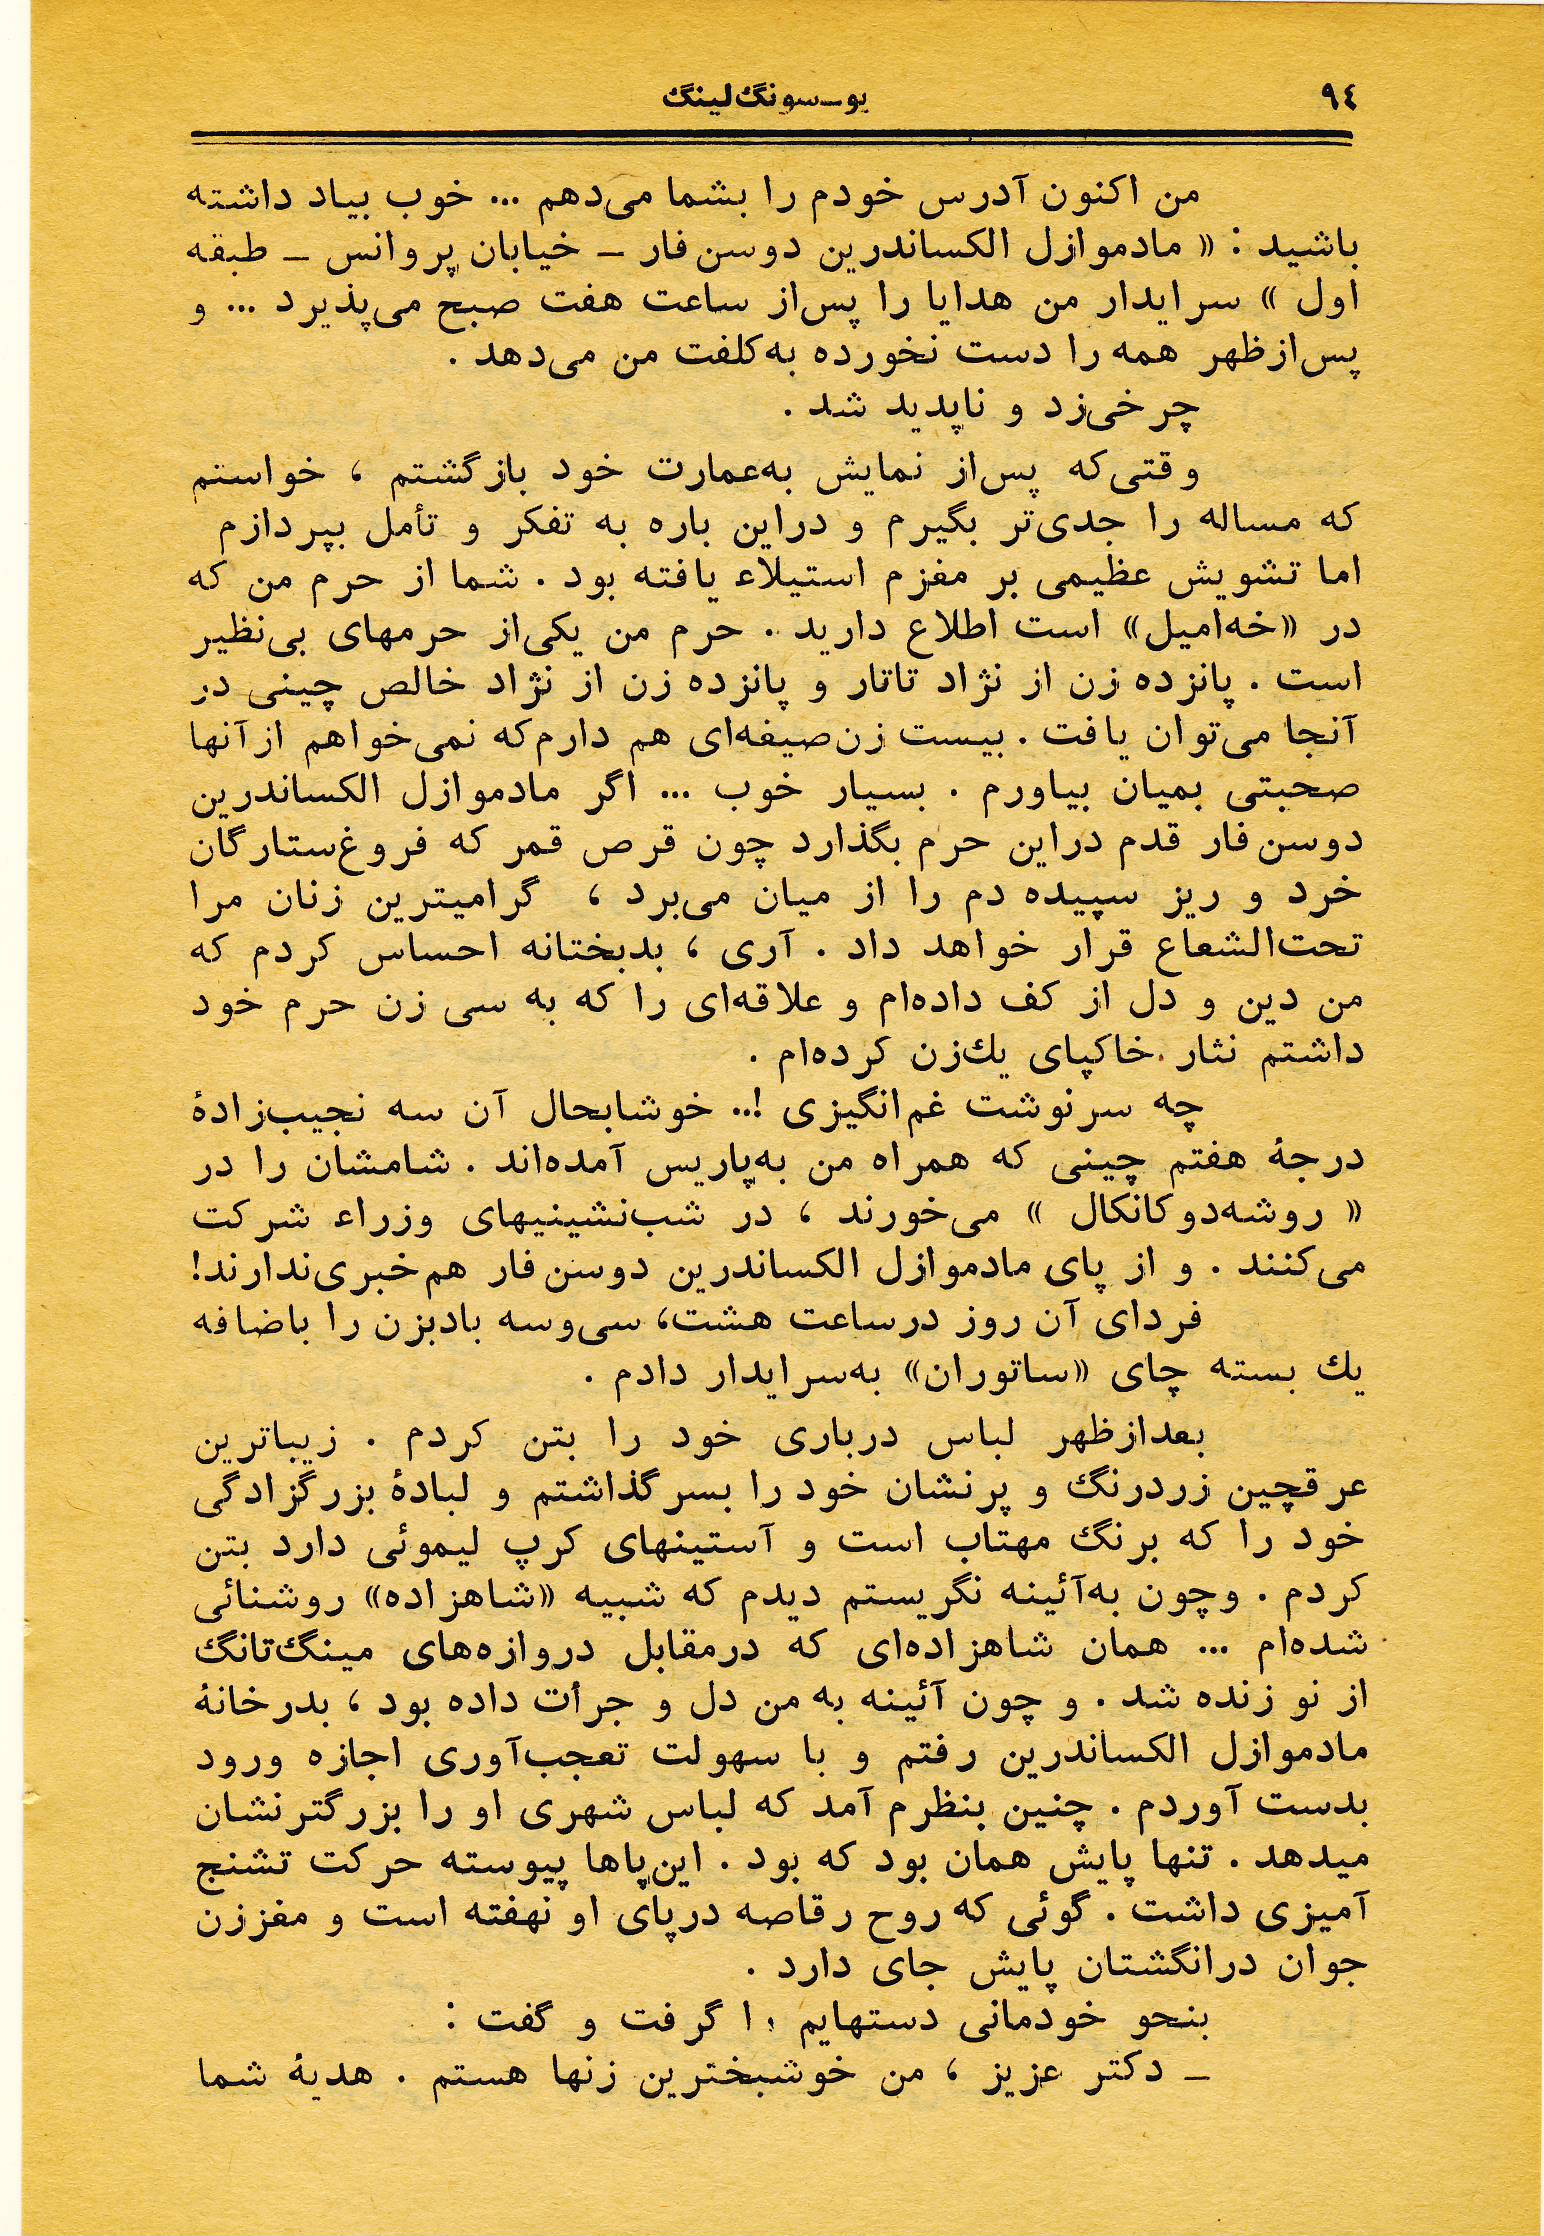 ۹٤
یو_سونگ‌لینگ
من اکنون آدرس خودم را بشما می‌دهم ... خوب بیاد داشته
باشید : « مادموازل الکساندرین دوسن‌فار _ خیابان پروانس _ طبقه
اول » سرایدار من هدایا را پس‌از ساعت هفت صبح می‌پذیرد ... و
پس‌ازظهر همه را دست نخورده به‌کلفت من می‌دهد .
چرخی‌زد و ناپدید شد .
وقتی‌که پس‌از نمایش به‌عمارت خود بازگشتم ، خواستم
که مساله را جدی‌تر بگیرم و دراین باره به تفکر و تأمل بپردازم
اما تشویش عظیمی بر مغزم استیلاء یافته بود . شما از حرم من که
در «خه‌امیل» است اطلاع دارید . حرم من یکی‌از حرمهای بی‌نظیر
است . پانزده زن از نژاد تاتار و پانزده زن از نژاد خالص چینی در
آنجا می‌توان یافت . بیست زن‌صیغه‌ای هم دارم‌که نمی‌خواهم ازآنها
صحبتی بمیان بیاورم . بسیار خوب ... اگر مادموازل الکساندرین
دوسن‌فار قدم دراین حرم بگذارد چون قرص قمر که فروغ‌ستارگان
خرد و ریز سپیده دم را از میان می‌برد ، گرامیترین زنان مرا
تحت‌الشعاع قرار خواهد داد . آری ، بدبختانه احساس کردم که
من دین و دل از کف داده‌ام و علاقه‌ای را که به سی زن حرم خود
داشتم نثار خاکپای یك‌زن کرده‌ام .
چه سرنوشت غم‌انگیزی !.. خوشابحال آن سه نجیب‌زادۀ
درجۀ هفتم چینی که همراه من به‌پاریس آمده‌اند . شامشان را در
« روشه‌دوکانکال » می‌خورند ، در شب‌نشینیهای وزراء شرکت
می‌کنند . و از پای مادموازل الکساندرین دوسن‌فار هم‌خبری‌ندارند!
فردای آن روز درساعت هشت، سی‌وسه بادبزن را باضافه
یك بسته چای «ساتوران» به‌سرایدار دادم .
بعدازظهر لباس درباری خود را بتن کردم . زیباترین
عرقچین زردرنگ و پرنشان خود را بسرگذاشتم و لبادۀ بزرگزادگی
خود را که برنگ مهتاب است و آستینهای کرپ لیموئی دارد بتن
کردم . وچون به‌آئینه نگریستم دیدم که شبیه «شاهزاده» روشنائی
شده‌ام ... همان شاهزاده‌ای که درمقابل دروازه‌های مینگ‌تانگ
از نو زنده شد . و چون آئینه به من دل و جرأت داده بود ، بدرخانۀ
مادموازل الکساندرین رفتم و با سهولت تعجب‌آوری اجازه ورود
بدست آوردم . چنین بنظرم آمد که لباس شهری او را بزرگترنشان
میدهد . تنها پایش همان بود که بود . این‌پاها پیوسته حرکت تشنج
آمیزی داشت . گوئی که روح رقاصه درپای او نهفته است و مغززن
جوان درانگشتان پایش جای دارد .
بنحو خودمانی دستهایم را گرفت و گفت :
_ دکتر عزیز ، من خوشبخترین زنها هستم . هدیۀ شما